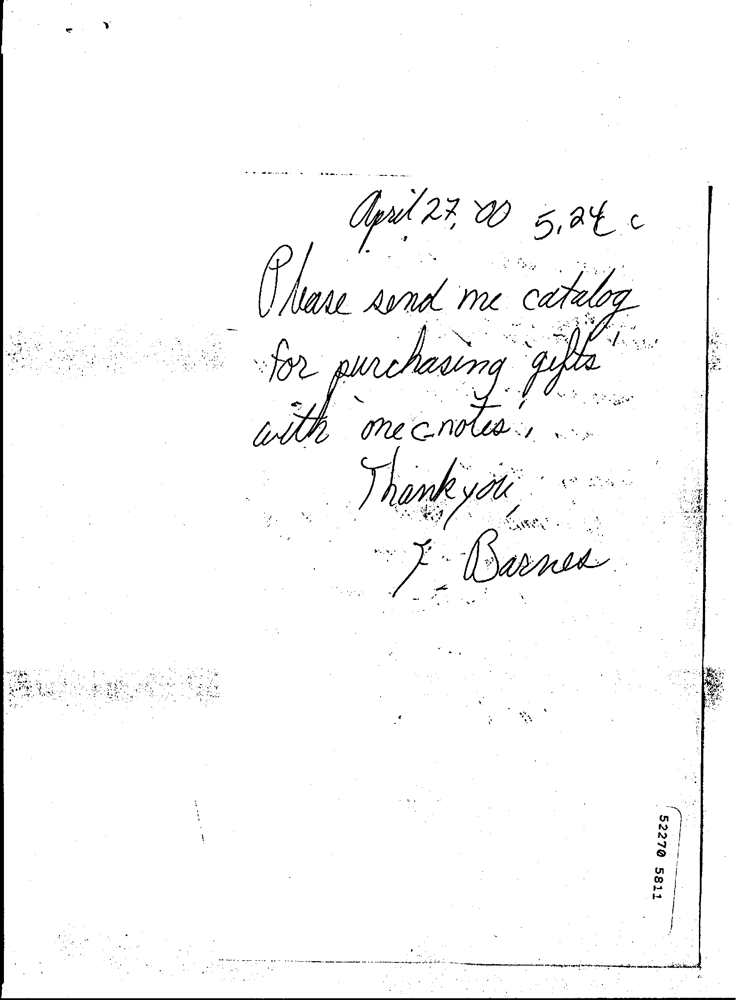 April 27, '00 5,24 c
Please send me catalog
for purchasing gifts
with "one c-notes".
Thank you,
F. Barnes
52270 5811